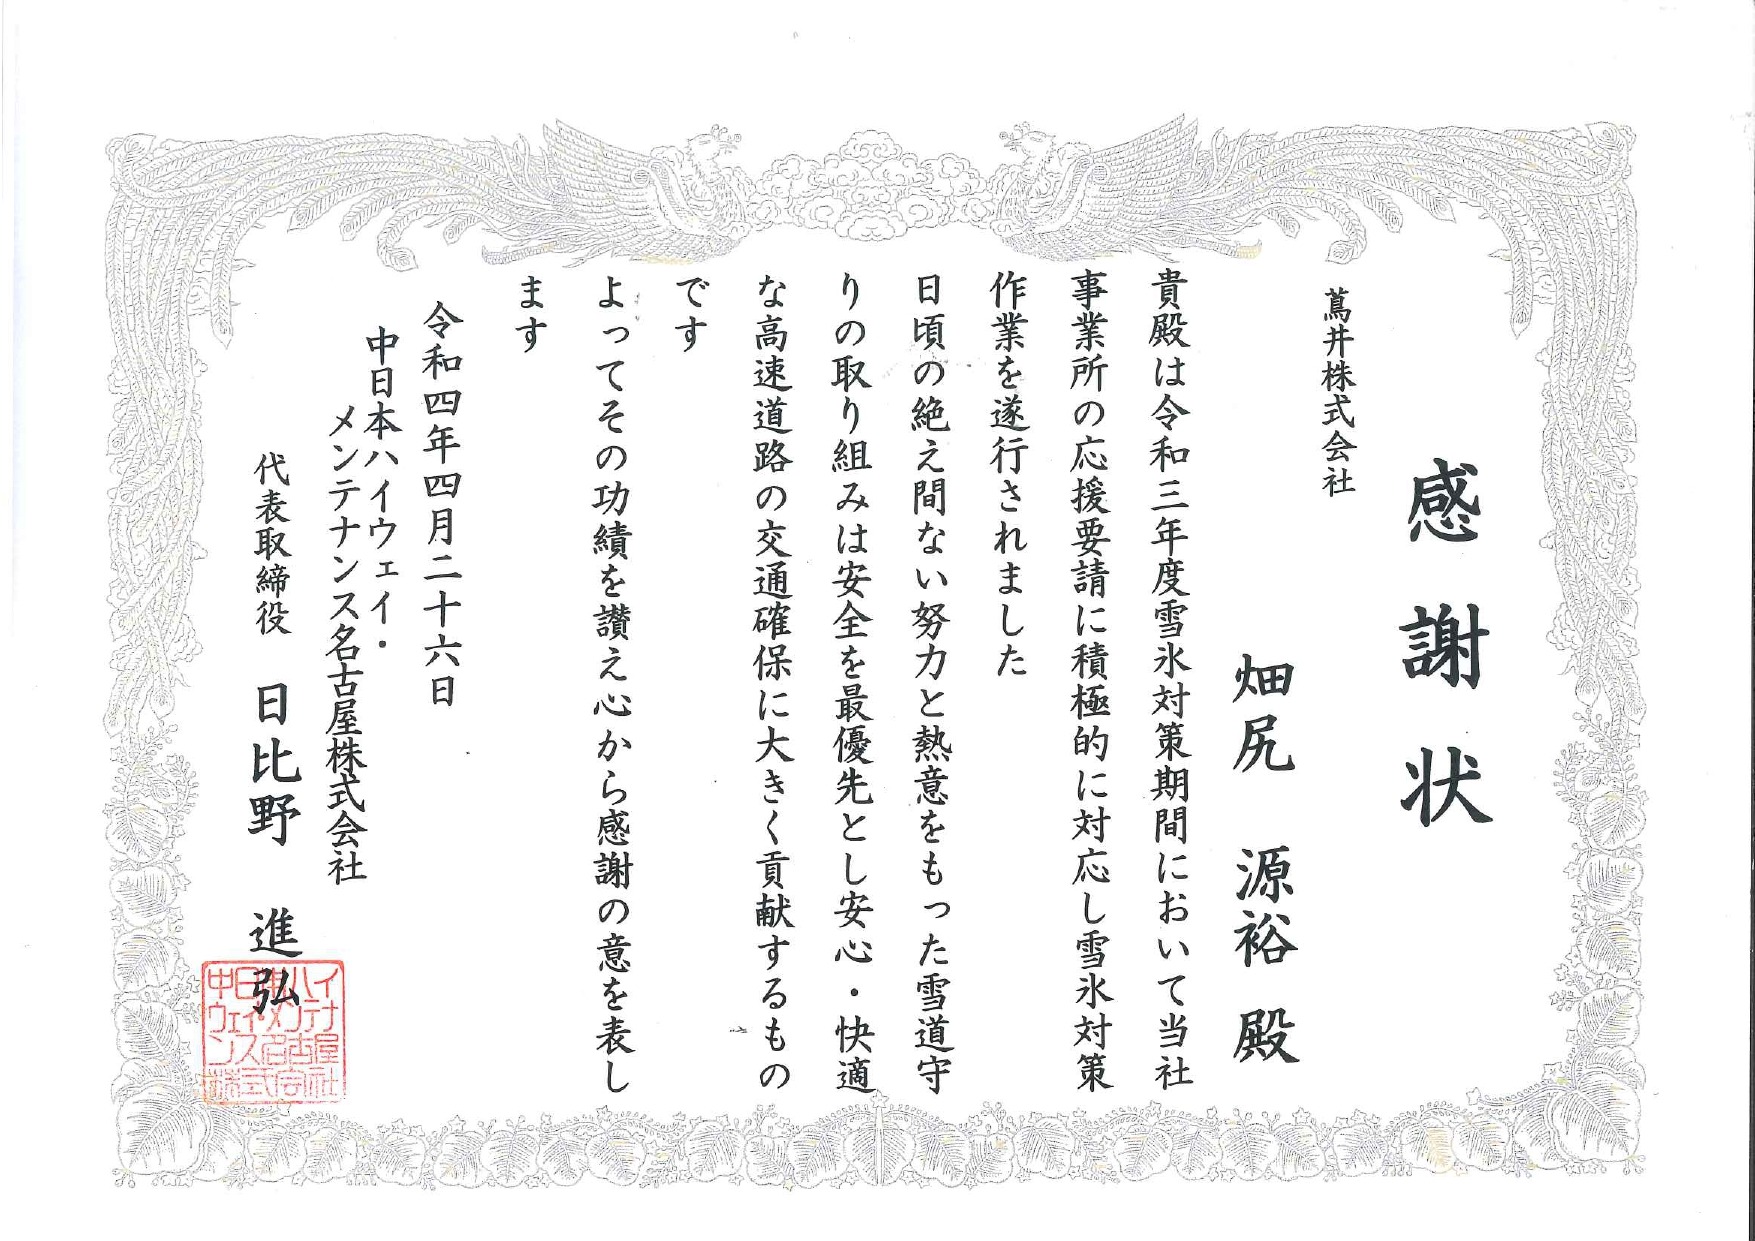 感謝状
蔦井株式会社
畑尻 源裕 殿
貴殿は令和三年度雪氷対策期間において当社
事業所の応援要請に積極的に対応し雪氷対策
作業を遂行されました
日頃の絶え間ない努力と熱意をもった雪道守
りの取り組みは安全を最優先とし安心・快適
な高速道路の交通確保に大きく貢献するもの
です
よってその功績を讃え心から感謝の意を表し
ます
令和四年四月二十六日
中日本ハイウェイ・
メンテナンス名古屋株式会社
代表取締役 日比野 進弘
中日本ハイ
ウェイ・メンテナ
ンス名古屋
株式会社